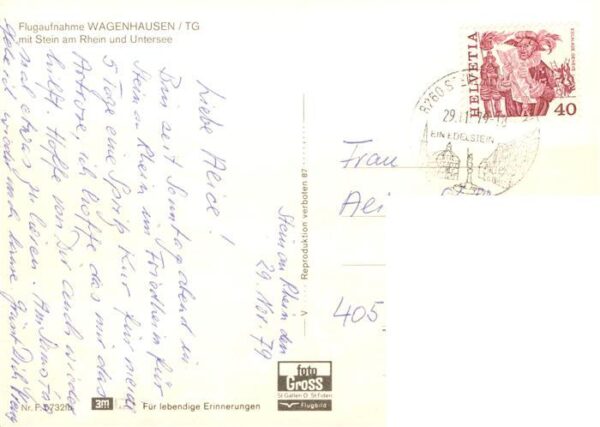 Flugaufnahme WAGENHAUSEN / TG
mit Stein am Rhein und Untersee
Stein am Rhein den
29. Nov. 79
Liebe Alice!
Bin seit Sonntag abend in
Stein a Rhein im Friedheim für
5 Tage eine Spritz Kur für meine
Artrose, ich hoffe das mir das
hilft. Hoffe von Dir auch wieder
mal etwas zu hören. Am
habe ich wieder nach Grüsst Dich
Nr. F
3M
Für lebendige Erinnerungen
foto
GROSS
St Gallen O. St Fiden
Flugbild
V Reproduktion verboten 87
HELVETIA
40
8260 S
29.11.79-1
EIN EDELSTEIN
Frau
405